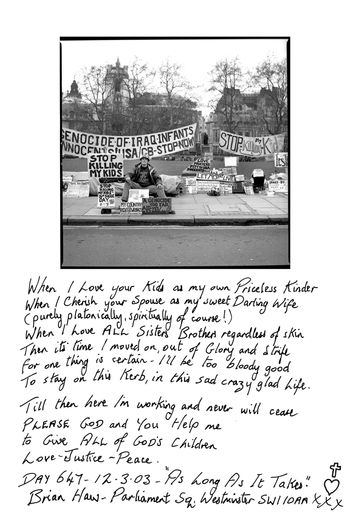 GENOCIDE·OF·IRAQ·INFANTS
INNOCENTS·USA/GB·STOP·NOW
STOP
KILLING
MY KIDS
STOP
When I Love your Kids as my own Priceless Kinder
When I Cherish your Spouse as my sweet Darling Wife
(purely platonically, spiritually of course!)
When I Love ALL Sisters Brothers regardless of skin
Then it's time I moved on, out of Glory and Strife
For one thing is certain - I'll be too bloody good
To stay on this Kerb, in this sad crazy glad Life.
Till then here I'm working and never will cease
PLEASE GOD and You Help me
to Give ALL of GOD'S Children
Love-Justice-Peace.
DAY 647-12·3·03-"As Long As It Takes"
Brian Haw-Parliament Sq, Westminster SW1 10AA XXX